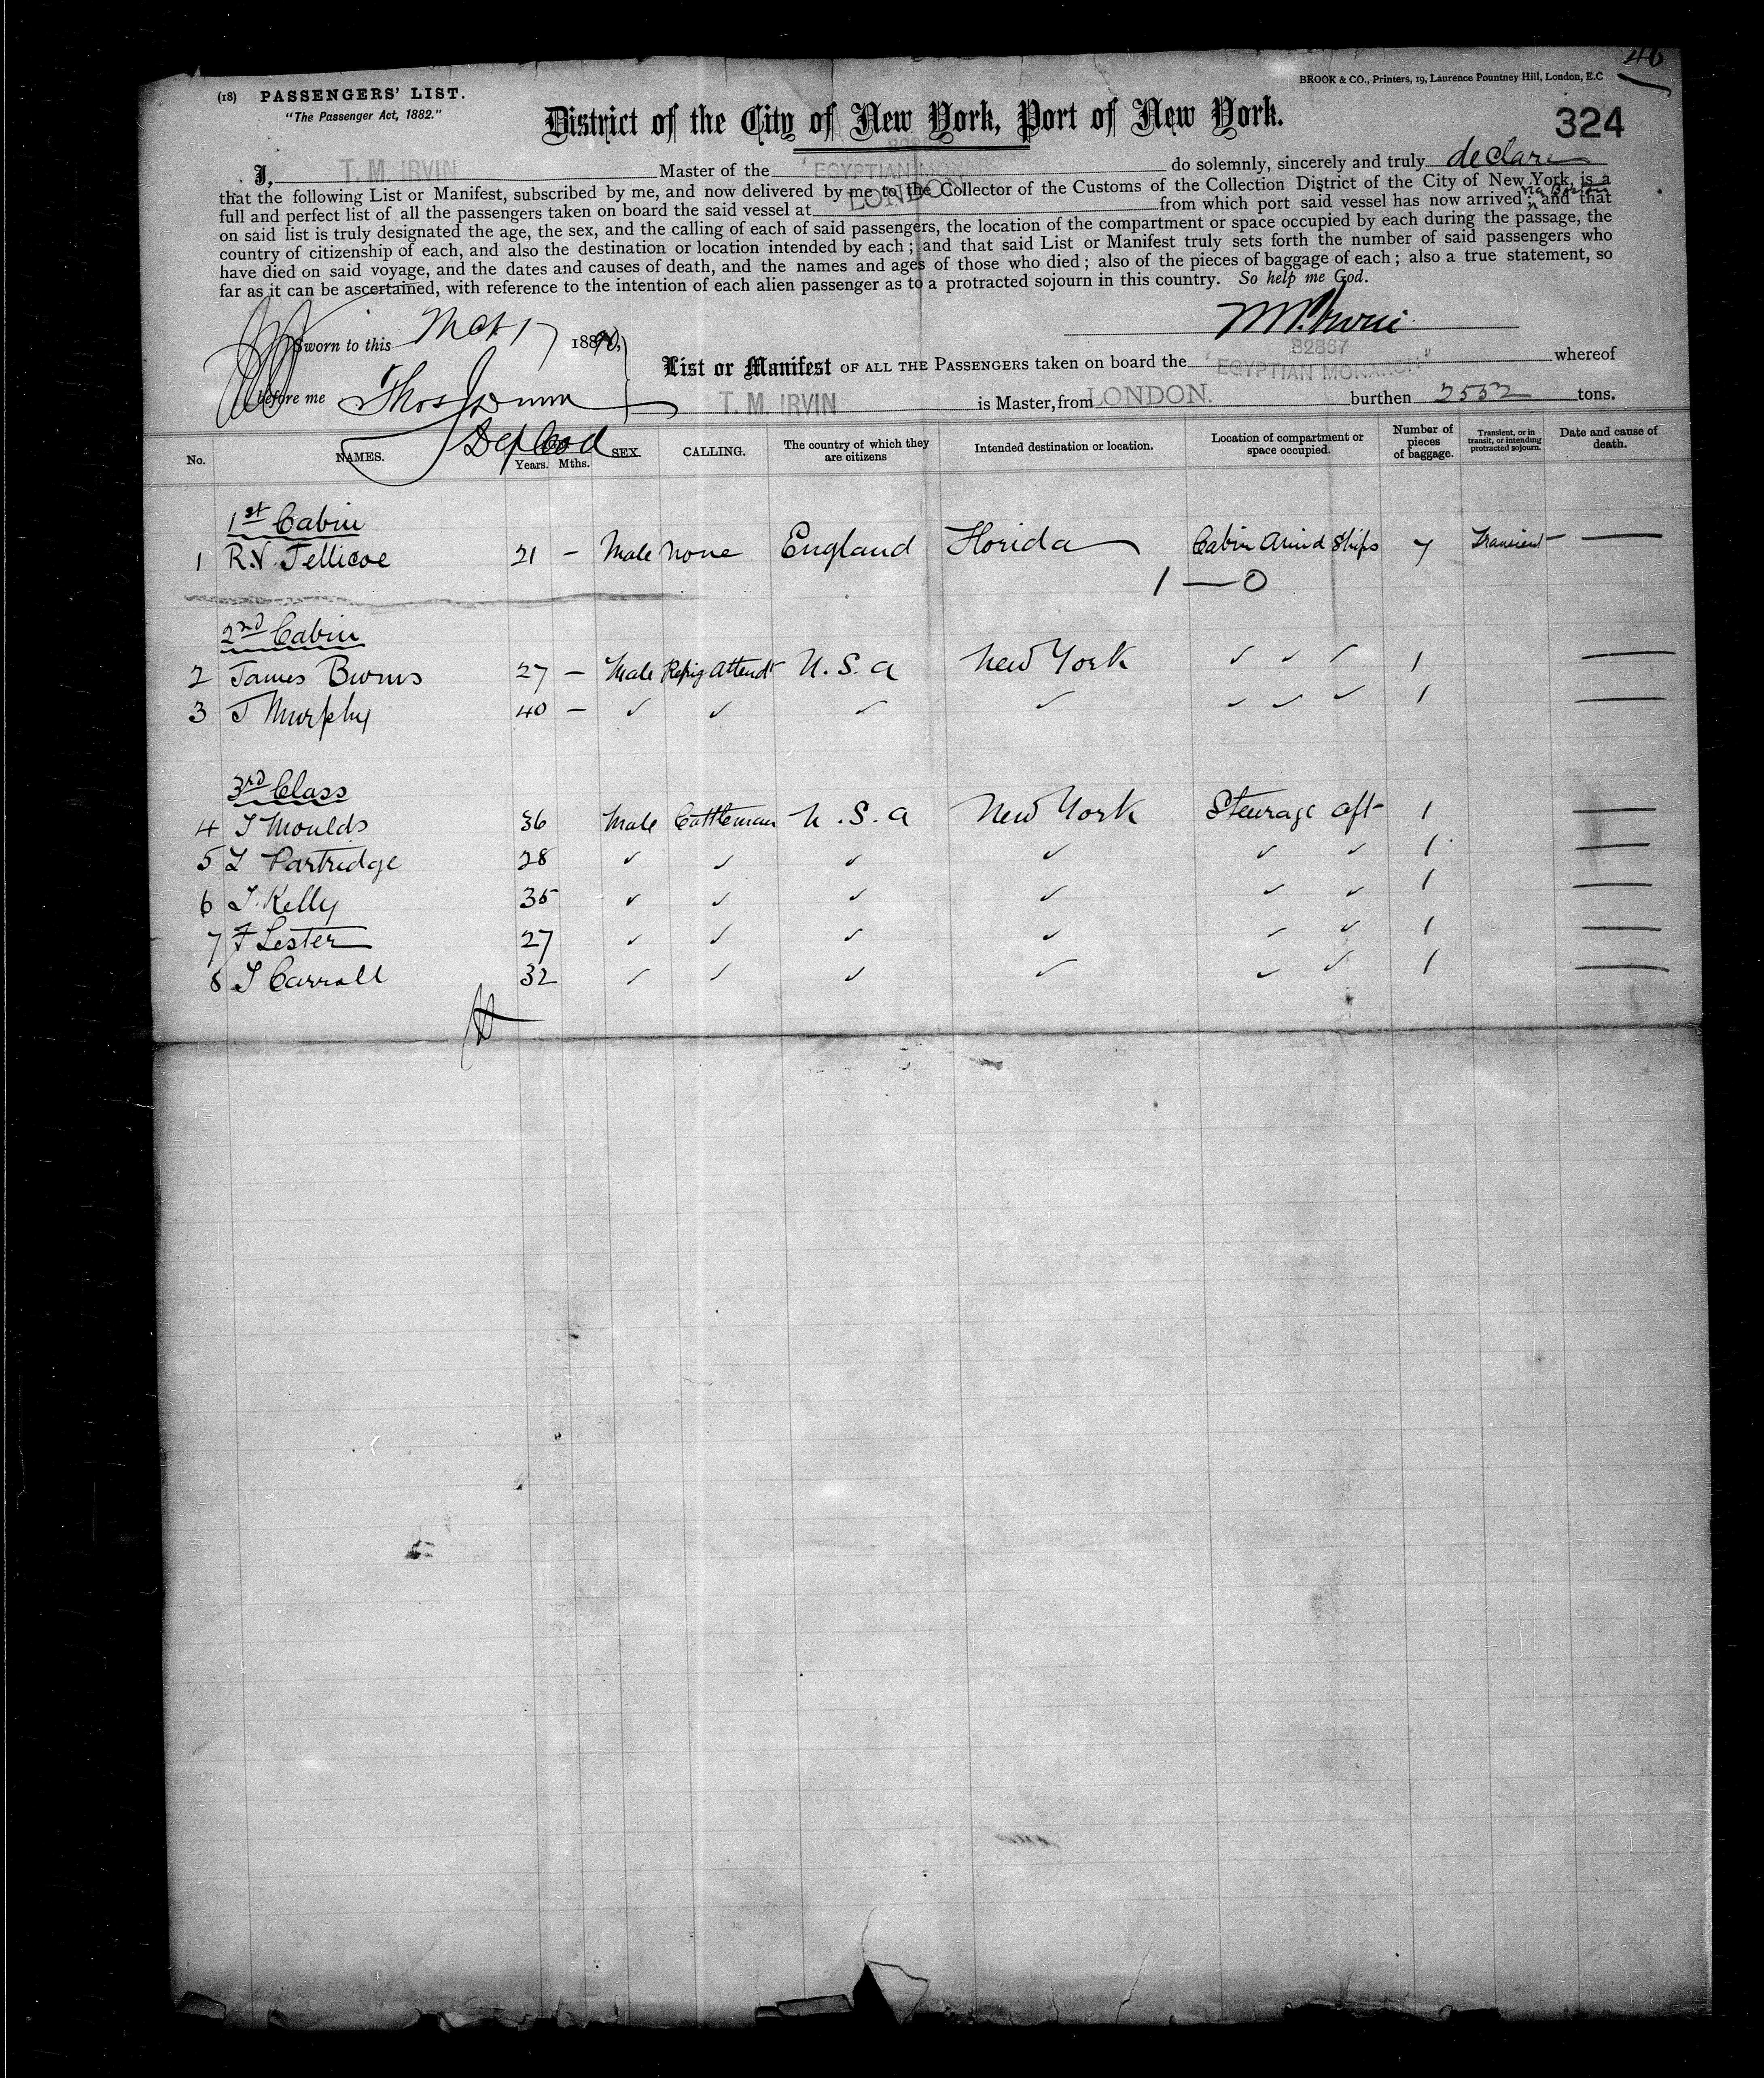 46
BROOK & CO., Printers, 19, Laurence Pountney Hill, London, E.C
(18) PASSENGERS' LIST.
"The Passenger Act, 1882."
District of the City of New York, Port of New York.
324
I, T. M. IRVIN Master of the "EGYPTIAN MONARCH" do solemnly, sincerely and truly declare
that the following List or Manifest, subscribed by me, and now delivered by me to the Collector of the Customs of the Collection District of the City of New York, is a
full and perfect list of all the passengers taken on board the said vessel at LONDON from which port said vessel has now arrived via Boston; and that
on said list is truly designated the age, the sex, and the calling of each of said passengers, the location of the compartment or space occupied by each during the passage, the
country of citizenship of each, and also the destination or location intended by each; and that said List or Manifest truly sets forth the number of said passengers who
have died on said voyage, and the dates and causes of death, and the names and ages of those who died; also of the pieces of baggage of each; also a true statement, so
far as it can be ascertained, with reference to the intention of each alien passenger as to a protracted sojourn in this country. So help me God.
Sworn to this Mch 17 1890,
before me Thos
Dep Cod
82867
List or Manifest OF ALL THE PASSENGERS taken on board the "EGYPTIAN MONARCH" whereof
T. M. IRVIN is Master, from LONDON. burthen 2552 tons.
No. NAMES. Years. Mths. SEX. CALLING. The country of which they are citizens Intended destination or location. Location of compartment or space occupied. Number of pieces of baggage. Transient, or in transit, or intending protracted sojourn. Date and cause of death.
1st Cabin
1 R.N. Jellicoe 21 — Male None England Florida Cabin Amid Ships 7 Transient —
1 — 0
2nd Cabin
2 James Burns 27 — Male Refrig Attendt U.S.A New York ✓ ✓ ✓ 1 —
3 J Murphy 40 — ✓ ✓ ✓ ✓ ✓ ✓ ✓ 1 —
3rd Class
4 T Moulds 36 Male Cattleman U.S.A New York Steurage aft 1 —
5 T Partridge 28 ✓ ✓ ✓ ✓ ✓ ✓ 1 —
6 T. Kelly 35 ✓ ✓ ✓ ✓ ✓ ✓ 1 —
7 F Lester 27 ✓ ✓ ✓ ✓ ✓ ✓ 1 —
8 T Carroll 32 ✓ ✓ ✓ ✓ ✓ ✓ 1 —